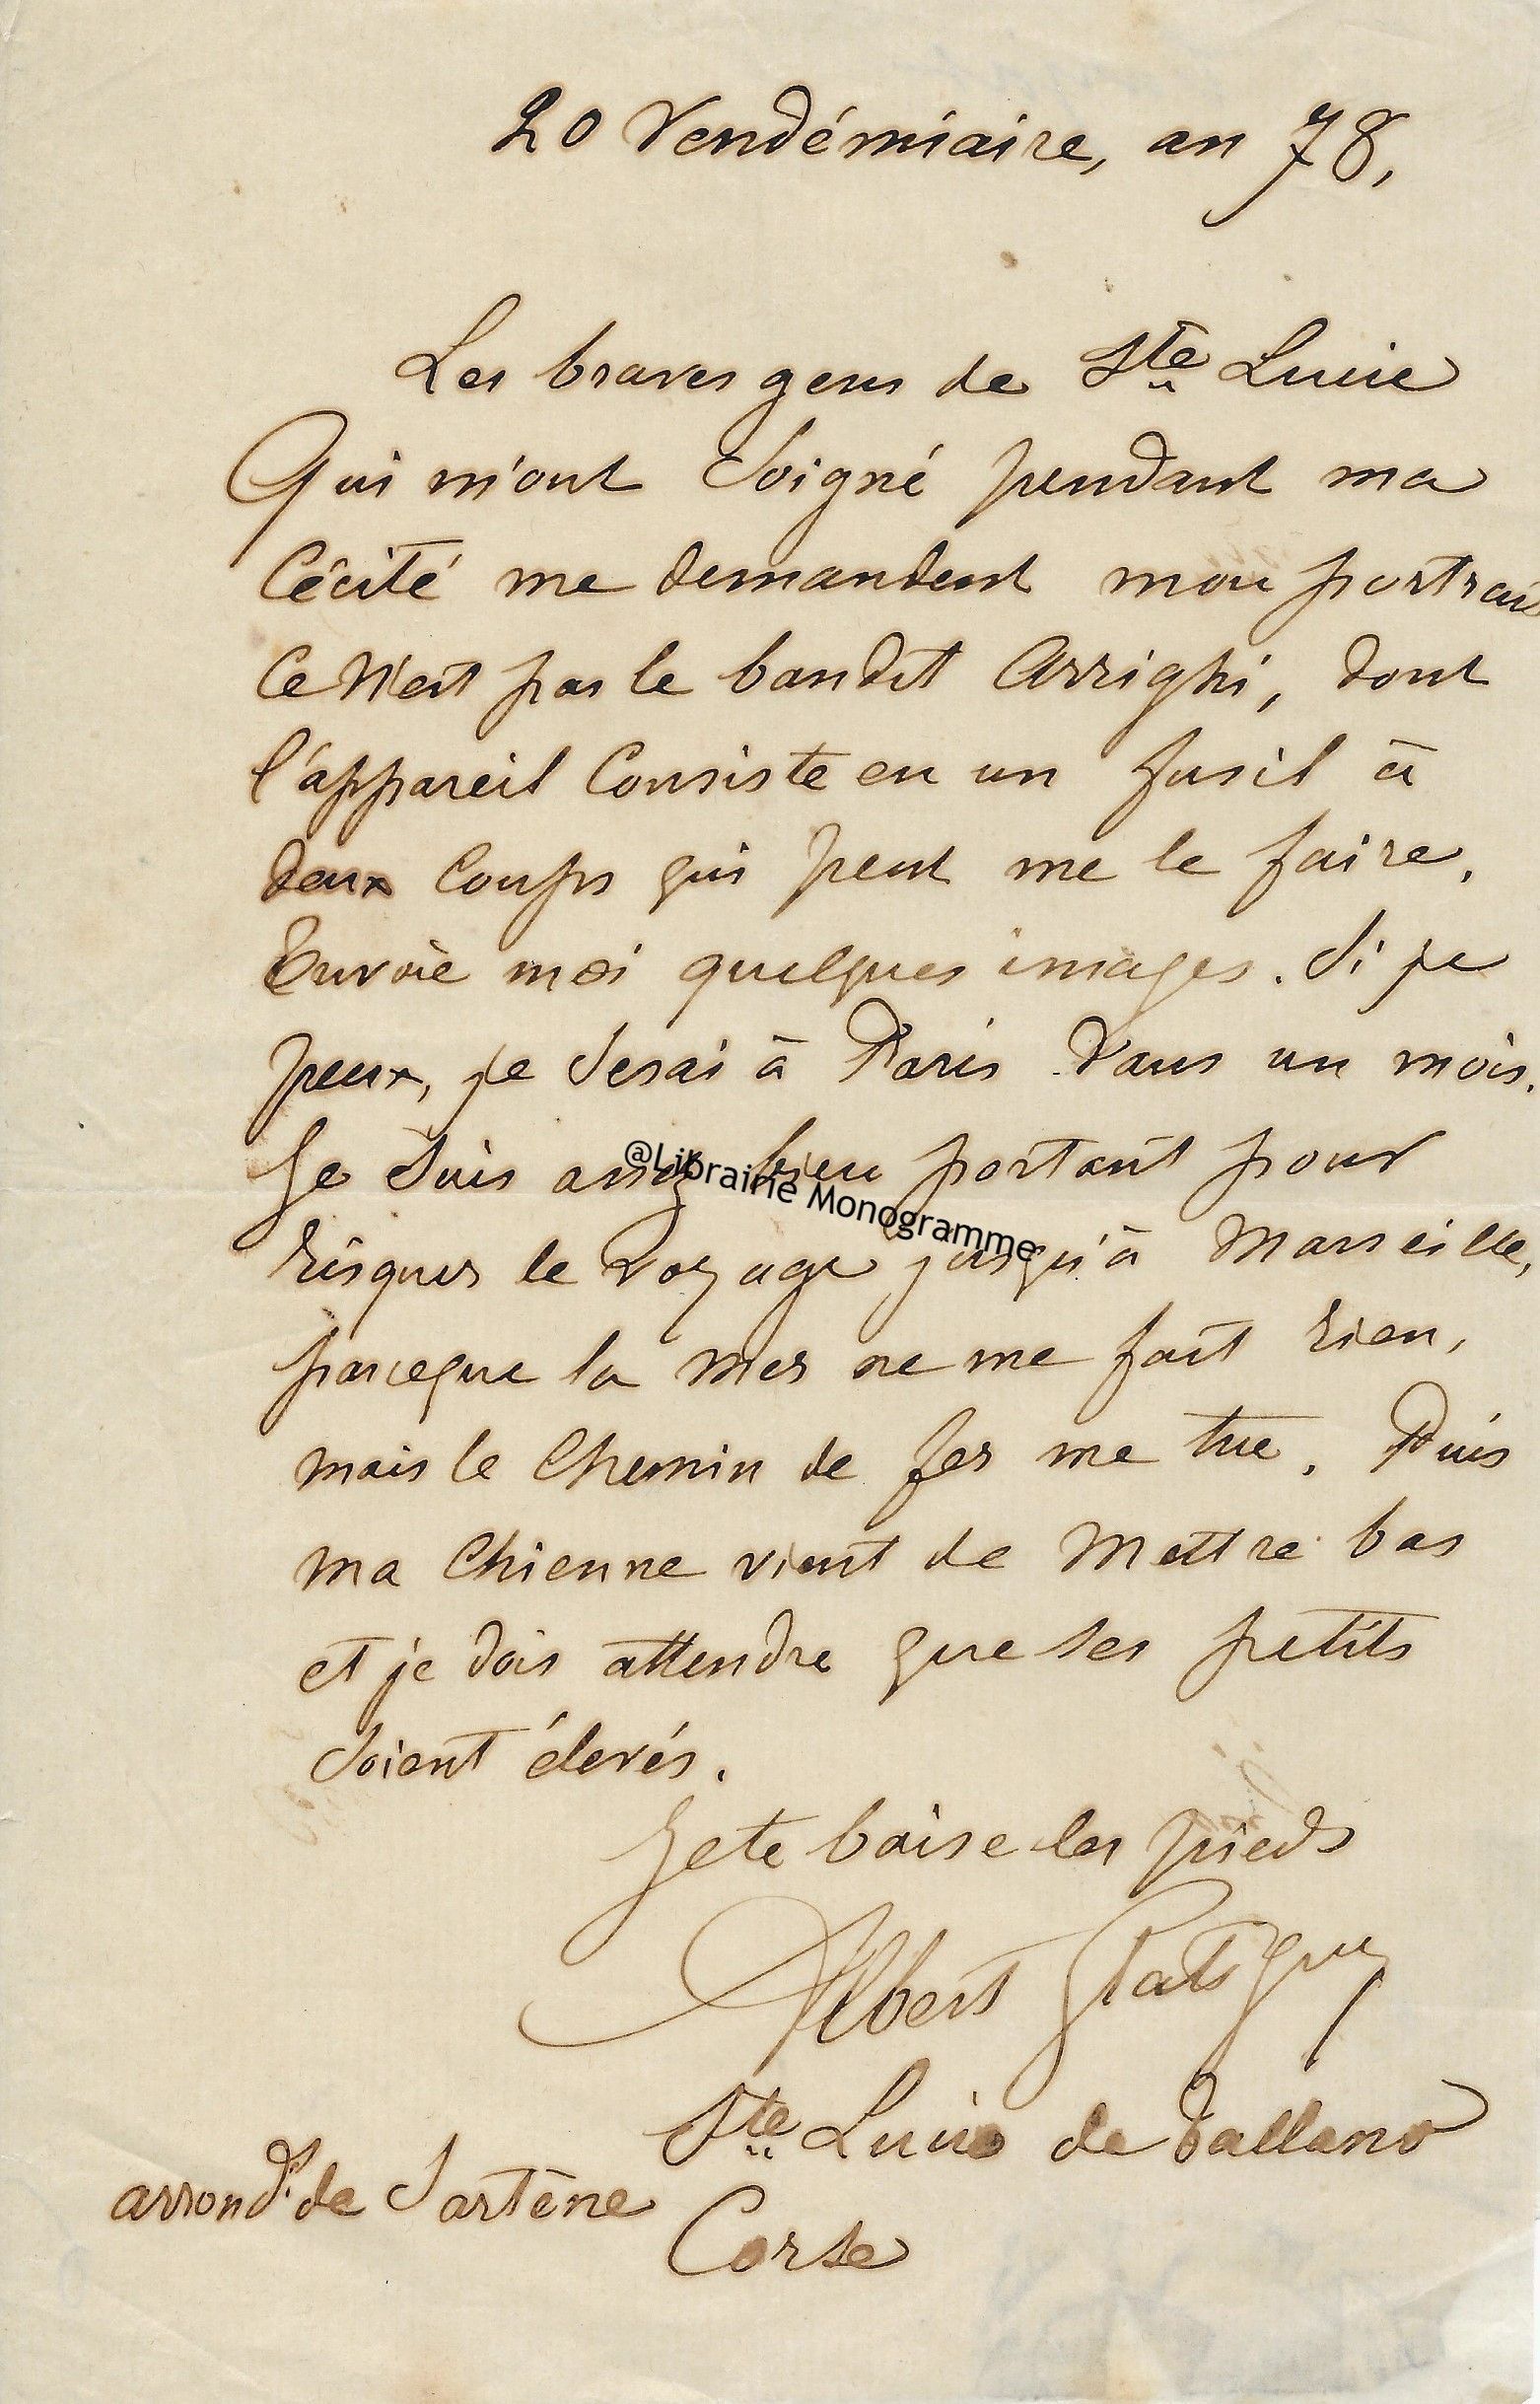 20 Vendémiaire, an 78,
Les braves gens de Ste Lucie
Qui m'ont soigné pendant ma
Cécité me demandent mon portrait
Ce N'est pas le bandit Arrighi, dont
l'appareil Consiste en un fusil à
deux Coups qui peut me le faire.
Envoie moi quelques images. Si je
peux, je serai à Paris dans un mois.
Je suis assez bien portant pour
risquer le voyage jusqu'à Marseille,
parceque la mer ne me fait rien,
mais le Chemin de fer me tue. Puis
ma Chienne vient de Mettre bas
et je dois attendre que ses petits
soient élevés.
Je te baise les pieds
Albert Glatigny
Ste Lucie de Tallano
arrondt. de Sartène
Corse
@Librairie Monogramme